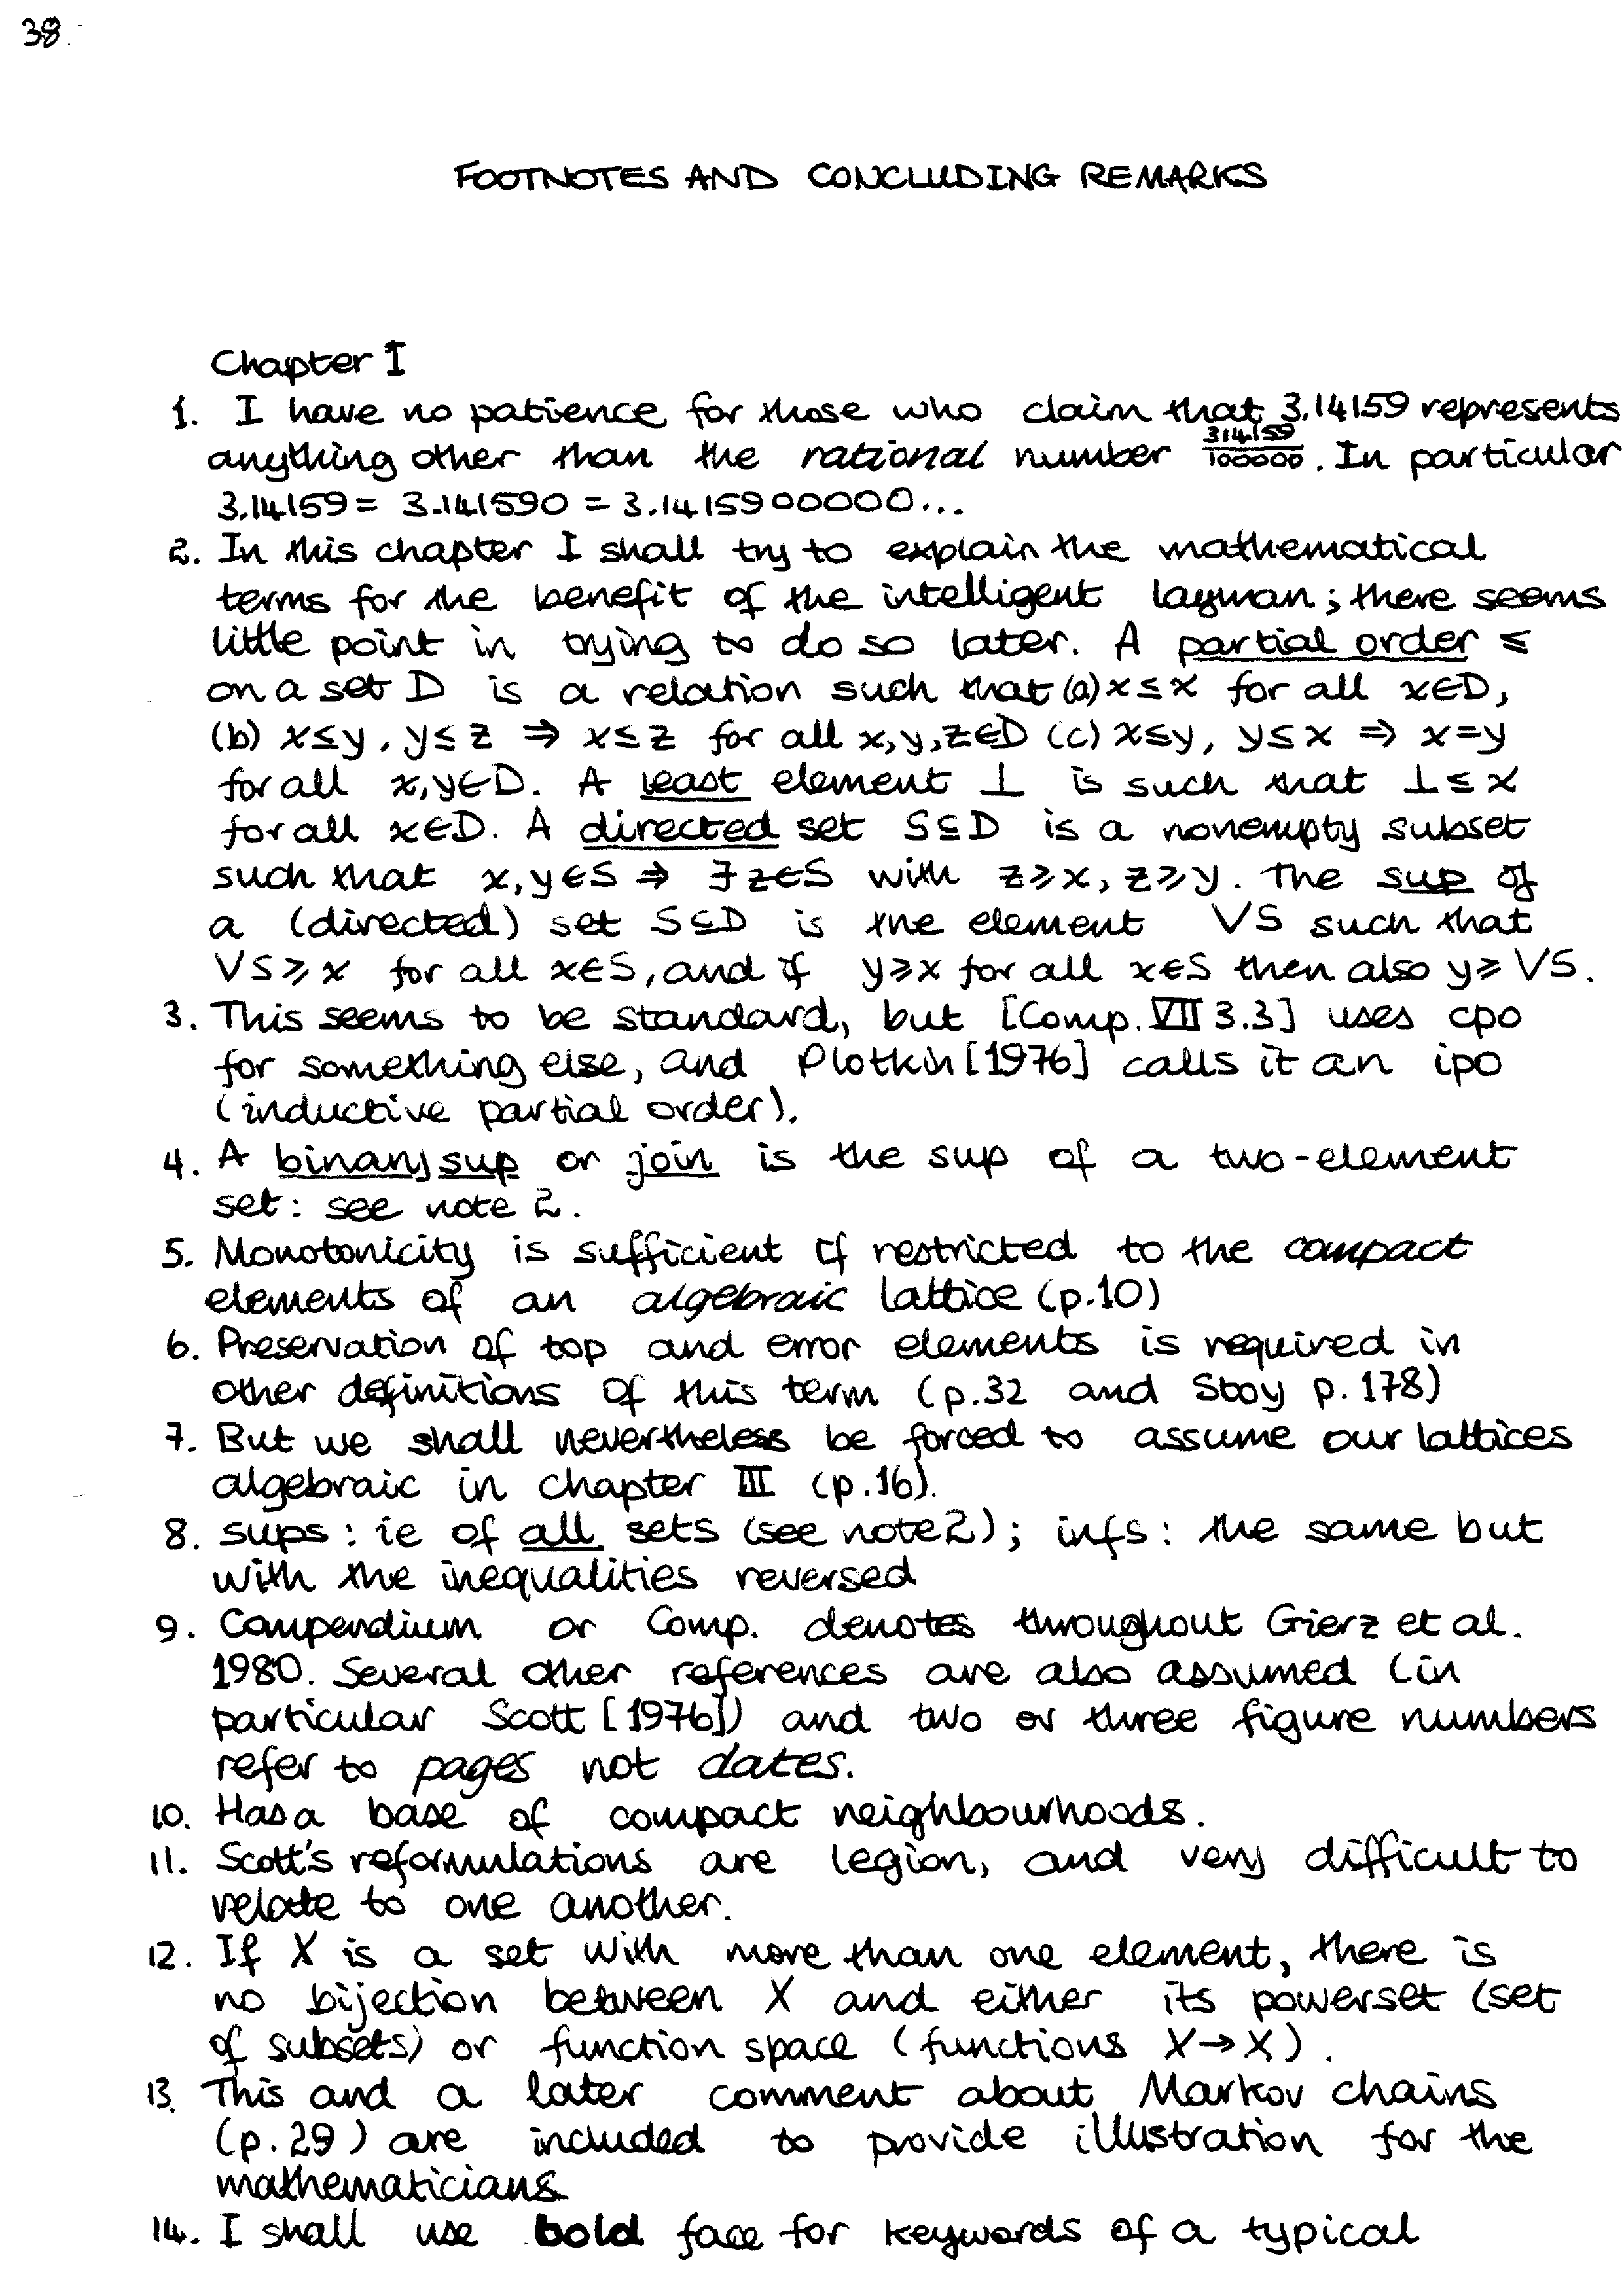 38.
FOOTNOTES AND CONCLUDING REMARKS
Chapter I
1. I have no patience for those who claim that 3.14159 represents
anything other than the rational number 314159/100000. In particular
3.14159 = 3.141590 = 3.1415900000...
2. In this chapter I shall try to explain the mathematical
terms for the benefit of the intelligent layman; there seems
little point in trying to do so later. A partial order ≤
on a set D is a relation such that (a) x≤x for all x∈D,
(b) x≤y, y≤z ⇒ x≤z for all x,y,z∈D (c) x≤y, y≤x ⇒ x=y
for all x,y∈D. A least element ⊥ is such that ⊥≤x
for all x∈D. A directed set S⊆D is a nonempty subset
such that x,y∈S ⇒ ∃z∈S with z≥x, z≥y. The sup of
a (directed) set S⊆D is the element VS such that
VS≥x for all x∈S, and if y≥x for all x∈S then also y≥VS.
3. This seems to be standard, but [Comp. VII 3.3] uses cpo
for something else, and Plotkin [1976] calls it an ipo
(inductive partial order).
4. A binary sup or join is the sup of a two-element
set: see note 2.
5. Monotonicity is sufficient if restricted to the compact
elements of an algebraic lattice (p.10)
6. Preservation of top and error elements is required in
other definitions of this term (p.32 and Stoy p.178)
7. But we shall nevertheless be forced to assume our lattices
algebraic in chapter III (p.16).
8. sups: ie of all sets (see note 2); infs: the same but
with the inequalities reversed
9. Compendium or Comp. denotes throughout Gierz et al.
1980. Several other references are also assumed (in
particular Scott [1976]) and two or three figure numbers
refer to pages not dates.
10. Has a base of compact neighbourhoods.
11. Scott's reformulations are legion, and very difficult to
relate to one another.
12. If X is a set with more than one element, there is
no bijection between X and either its powerset (set
of subsets) or function space (functions X→X).
13. This and a later comment about Markov chains
(p.29) are included to provide illustration for the
mathematicians
14. I shall use bold face for keywords of a typical